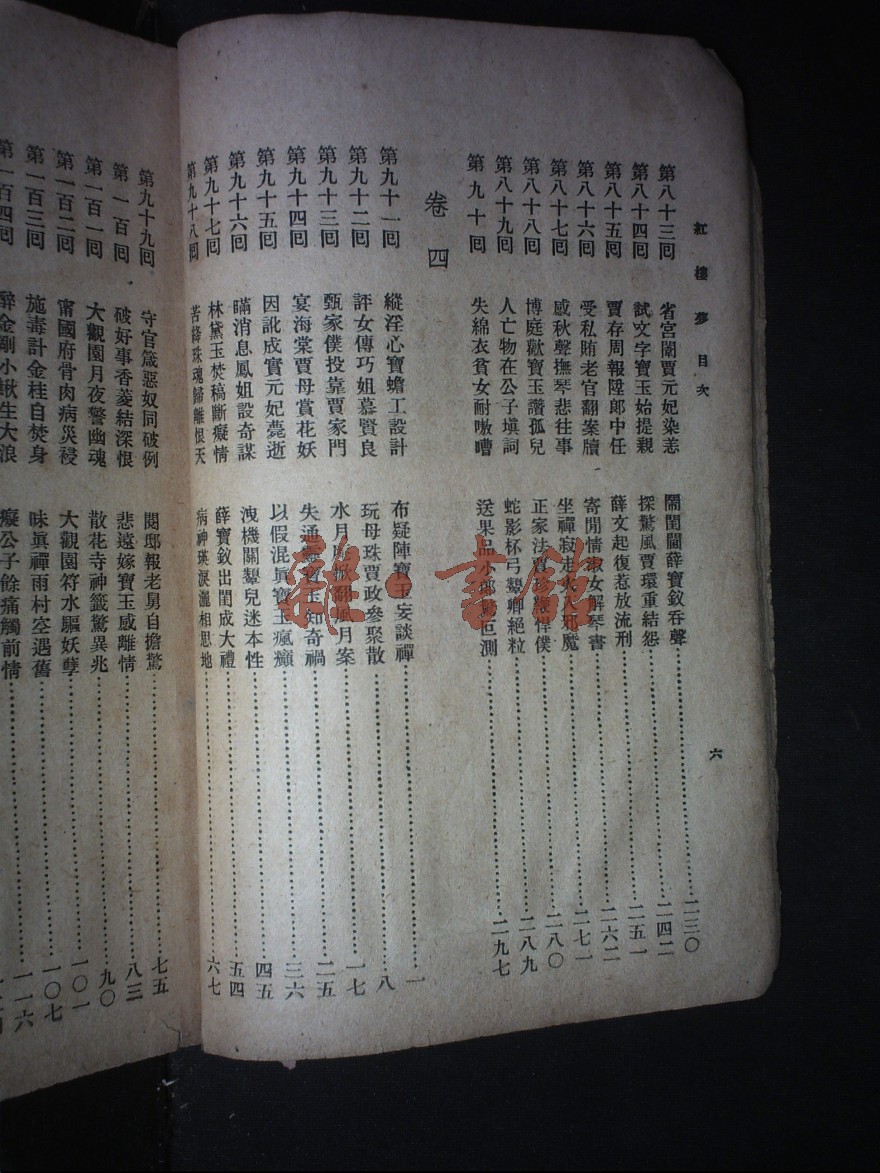 紅樓夢目次
六
第八十三囘 省宮闈賈元妃染恙 鬧閨閫薛寶釵吞聲 二三〇
第八十四囘 試文字寶玉始提親 探驚風賈環重結怨 二四二
第八十五囘 賈存周報陞郎中任 薛文起復惹放流刑 二五一
第八十六囘 受私賄老官翻案牘 寄閒情淑女解琴書 二六二
第八十七囘 感秋聲撫琴悲往事 坐禪寂走火入邪魔 二七一
第八十八囘 博庭歡寶玉讚孤兒 正家法賈珍鞭悍僕 二八〇
第八十九囘 人亡物在公子填詞 蛇影杯弓顰卿絕粒 二八九
第九十囘 失綿衣貧女耐嗷嘈 送果品小郎驚叵測 二九七
卷四
第九十一囘 縱淫心寶蟾工設計 布疑陣寶玉妄談禪 一
第九十二囘 評女傳巧姐慕賢良 玩母珠賈政參聚散 八
第九十三囘 甄家僕投靠賈家門 水月庵掀翻風月案 一七
第九十四囘 宴海棠賈母賞花妖 失通靈寶玉知奇禍 二五
第九十五囘 因訛成實元妃薨逝 以假混眞寶玉瘋癲 三六
第九十六囘 瞞消息鳳姐設奇謀 洩機關顰兒迷本性 四五
第九十七囘 林黛玉焚稿斷癡情 薛寶釵出閨成大禮 五四
第九十八囘 苦絳珠魂歸離恨天 病神瑛淚灑相思地 六七
第九十九囘 守官箴惡奴同破例 閱邸報老舅自擔驚 七五
第一百囘 破好事香菱結深恨 悲遠嫁寶玉感離情 八三
第一百一囘 大觀園月夜警幽魂 散花寺神籤驚異兆 九〇
第一百二囘 甯國府骨肉病災祲 大觀園符水驅妖孽 一〇一
第一百三囘 施毒計金桂自焚身 昧眞禪雨村空遇舊 一〇七
第一百四囘 醉金剛小鰍生大浪 癡公子餘痛觸前情 一一六
雜·書館